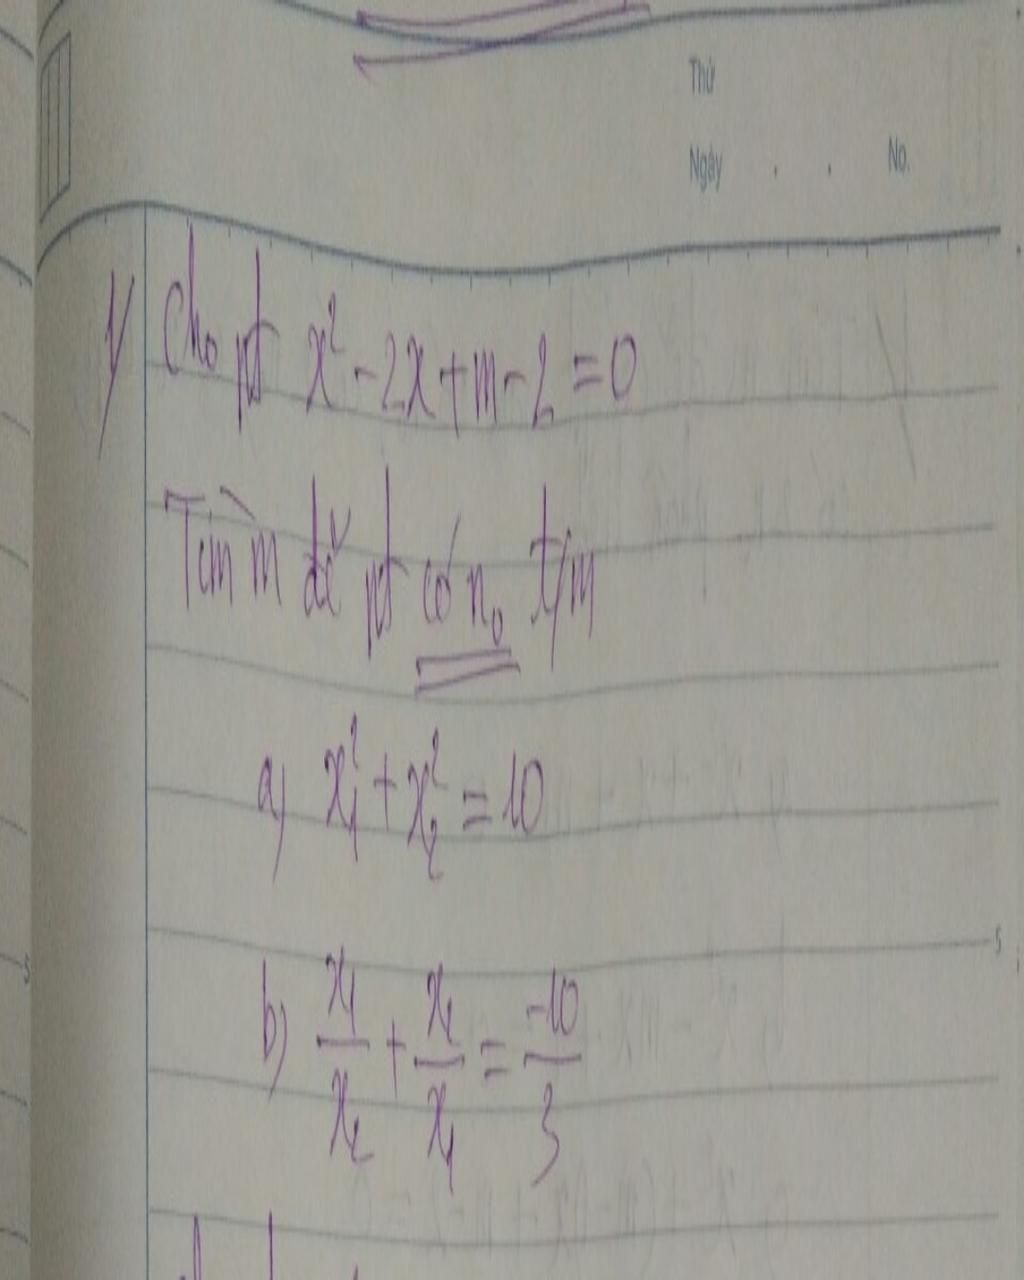 Thứ
Ngày . . No.
1/ Cho pt x² - 2x + m - 2 = 0
Tìm m để pt có n₀ t/m
a) x₁² + x₂² = 10
5
b) x₁/x₂ + x₂/x₁ = -10/3